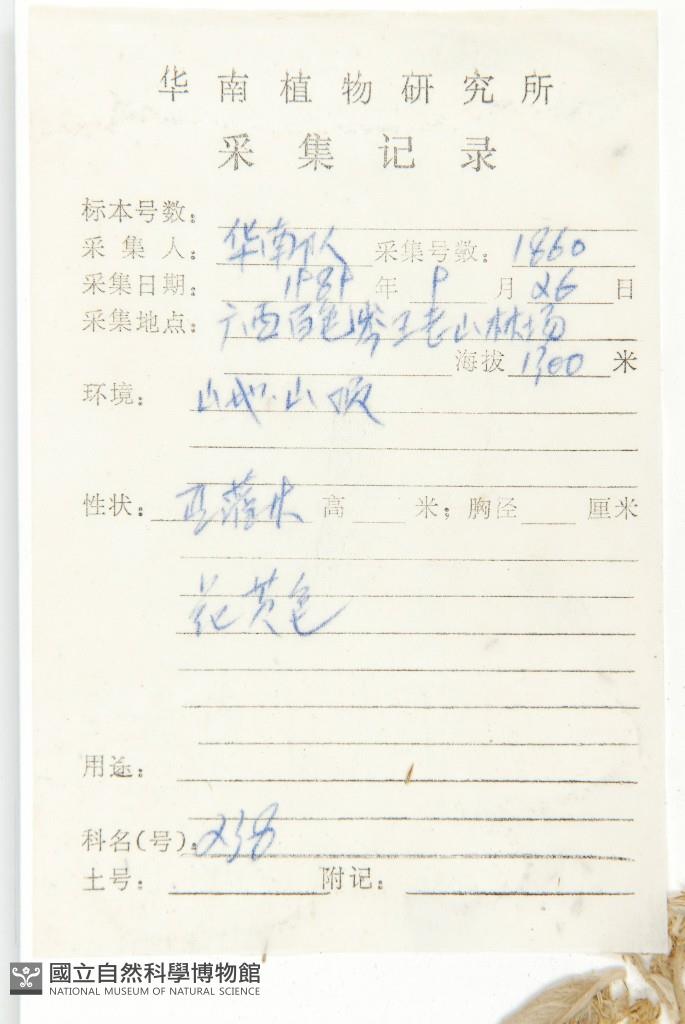 华南植物研究所
采集记录
标本号数：
采集人：华南队 采集号数：1860
采集日期：1989年9月26日
采集地点：广西百色岑王老山林场
海拔1300米
环境：山地.山坡
性状：亚灌木 高 米；胸径 厘米
花黄色
用途：
科名(号)：238
土号： 附记：
國立自然科學博物館
NATIONAL MUSEUM OF NATURAL SCIENCE